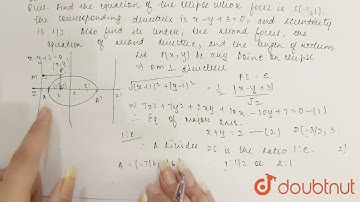 Ques. Find the equation of the ellipse whose focus is S(-1,1),
the corresponding directrix is x-y+3=0, and eccentricity
is 1/2. Also find its centre, the second focus, the
equation of second directrix, and the length of
Let P(x,y) be any point on ellipse
x-y+3=0
(x,y)
⇒ PM ⊥ directrix
PS = e
√(x+1)²+(y-1)² = 1/2 |x-y+3|/√2
⇒ 7x²+7y²+2xy+10x-10y+7=0 -(1)
∴ Eqn of Major axis
x+y=2 -(2)
∴ A divides ZS in the ratio 1:e.
1:1/2 or 2:1
doubtnut